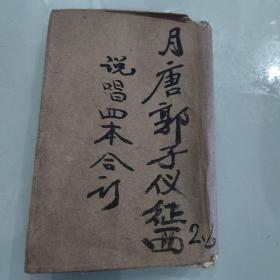 月唐郭子仪征西
说唱四本合订
2.6